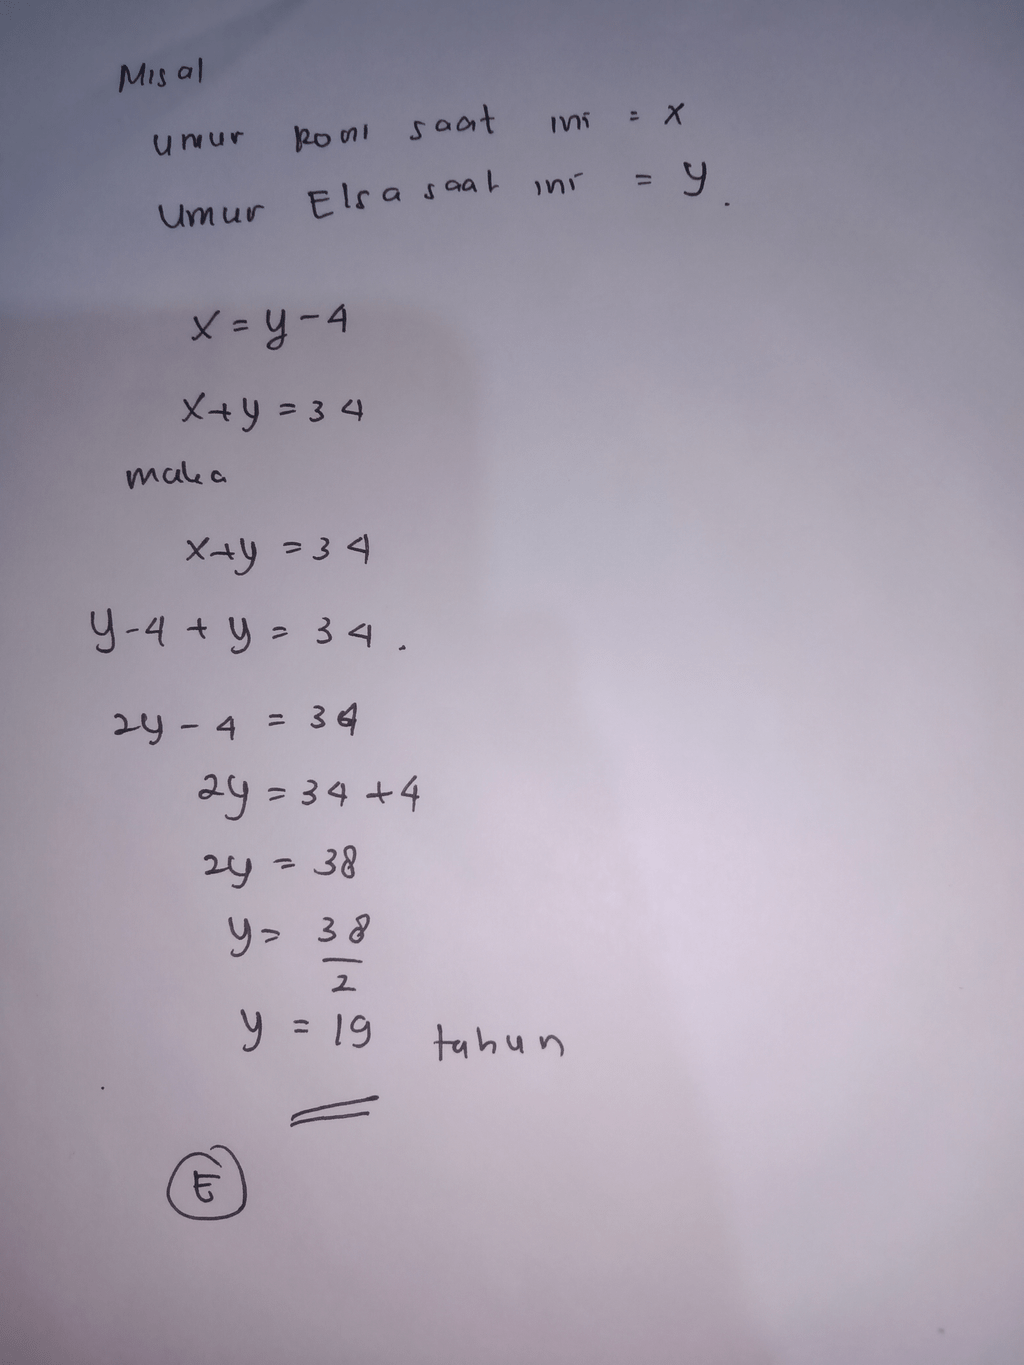 Misal
umur Roni saat ini = x
Umur Elsa saat ini = y.
x = y - 4
x + y = 34
maka
x + y = 34
y - 4 + y = 34.
2y - 4 = 34
2y = 34 + 4
2y = 38
y = 38
2
y = 19 tahun
E